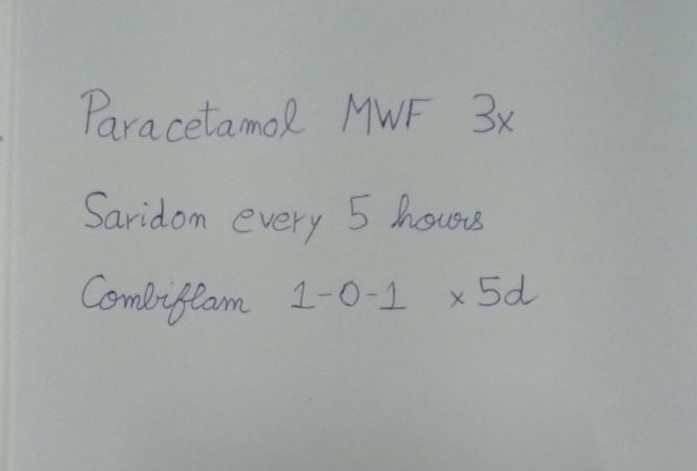 Paracetamol MWF 3x
Saridon every 5 hours
Combiflam 1-0-1 x 5d